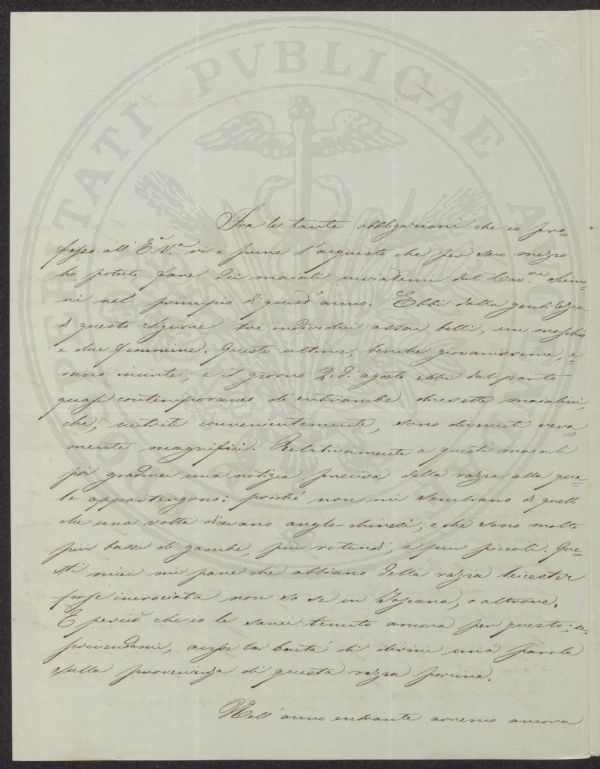 Fra le tante obbligazioni che io pro-
fesso all' E.ª V.ª vi è pure l'acquisto che per suo mezzo
ho potuto fare dei maiali del Cav.re
nel principio di quest'anno. Ebbi dalla gentilezza
di questo Signore tre individui assai belli, un maschio
e due femmine. Queste ultime, benché giovanissime, e-
rano incinte, e il giorno 2 d'agosto ebbi dal parto
quasi contemporaneo di entrambe diciasette maialini,
che, nutriti convenientemente, sono divenuti vera-
mente magnifici. Relativamente a questi maiali
poi gradirei una notizia precisa della razza alla qua-
le appartengono: poiché non mi sembrano di quelli
che una volta dicevano anglo-chinesi, e che sono molto
più bassi di gambe, più rotondi, e più piccoli. Que-
sti miei mi pare che abbiano della razza leicester
forse incrociata non so se in Toscana, o altrove.
E perciò che io le sarei tenuto ancora per questo, se,
scrivendomi, avesse la bontà di dirmi una parola
sulla provenienza di questa razza porcina.
Nell'anno entrante avremo ancora
VBERTATI PVBLICAE